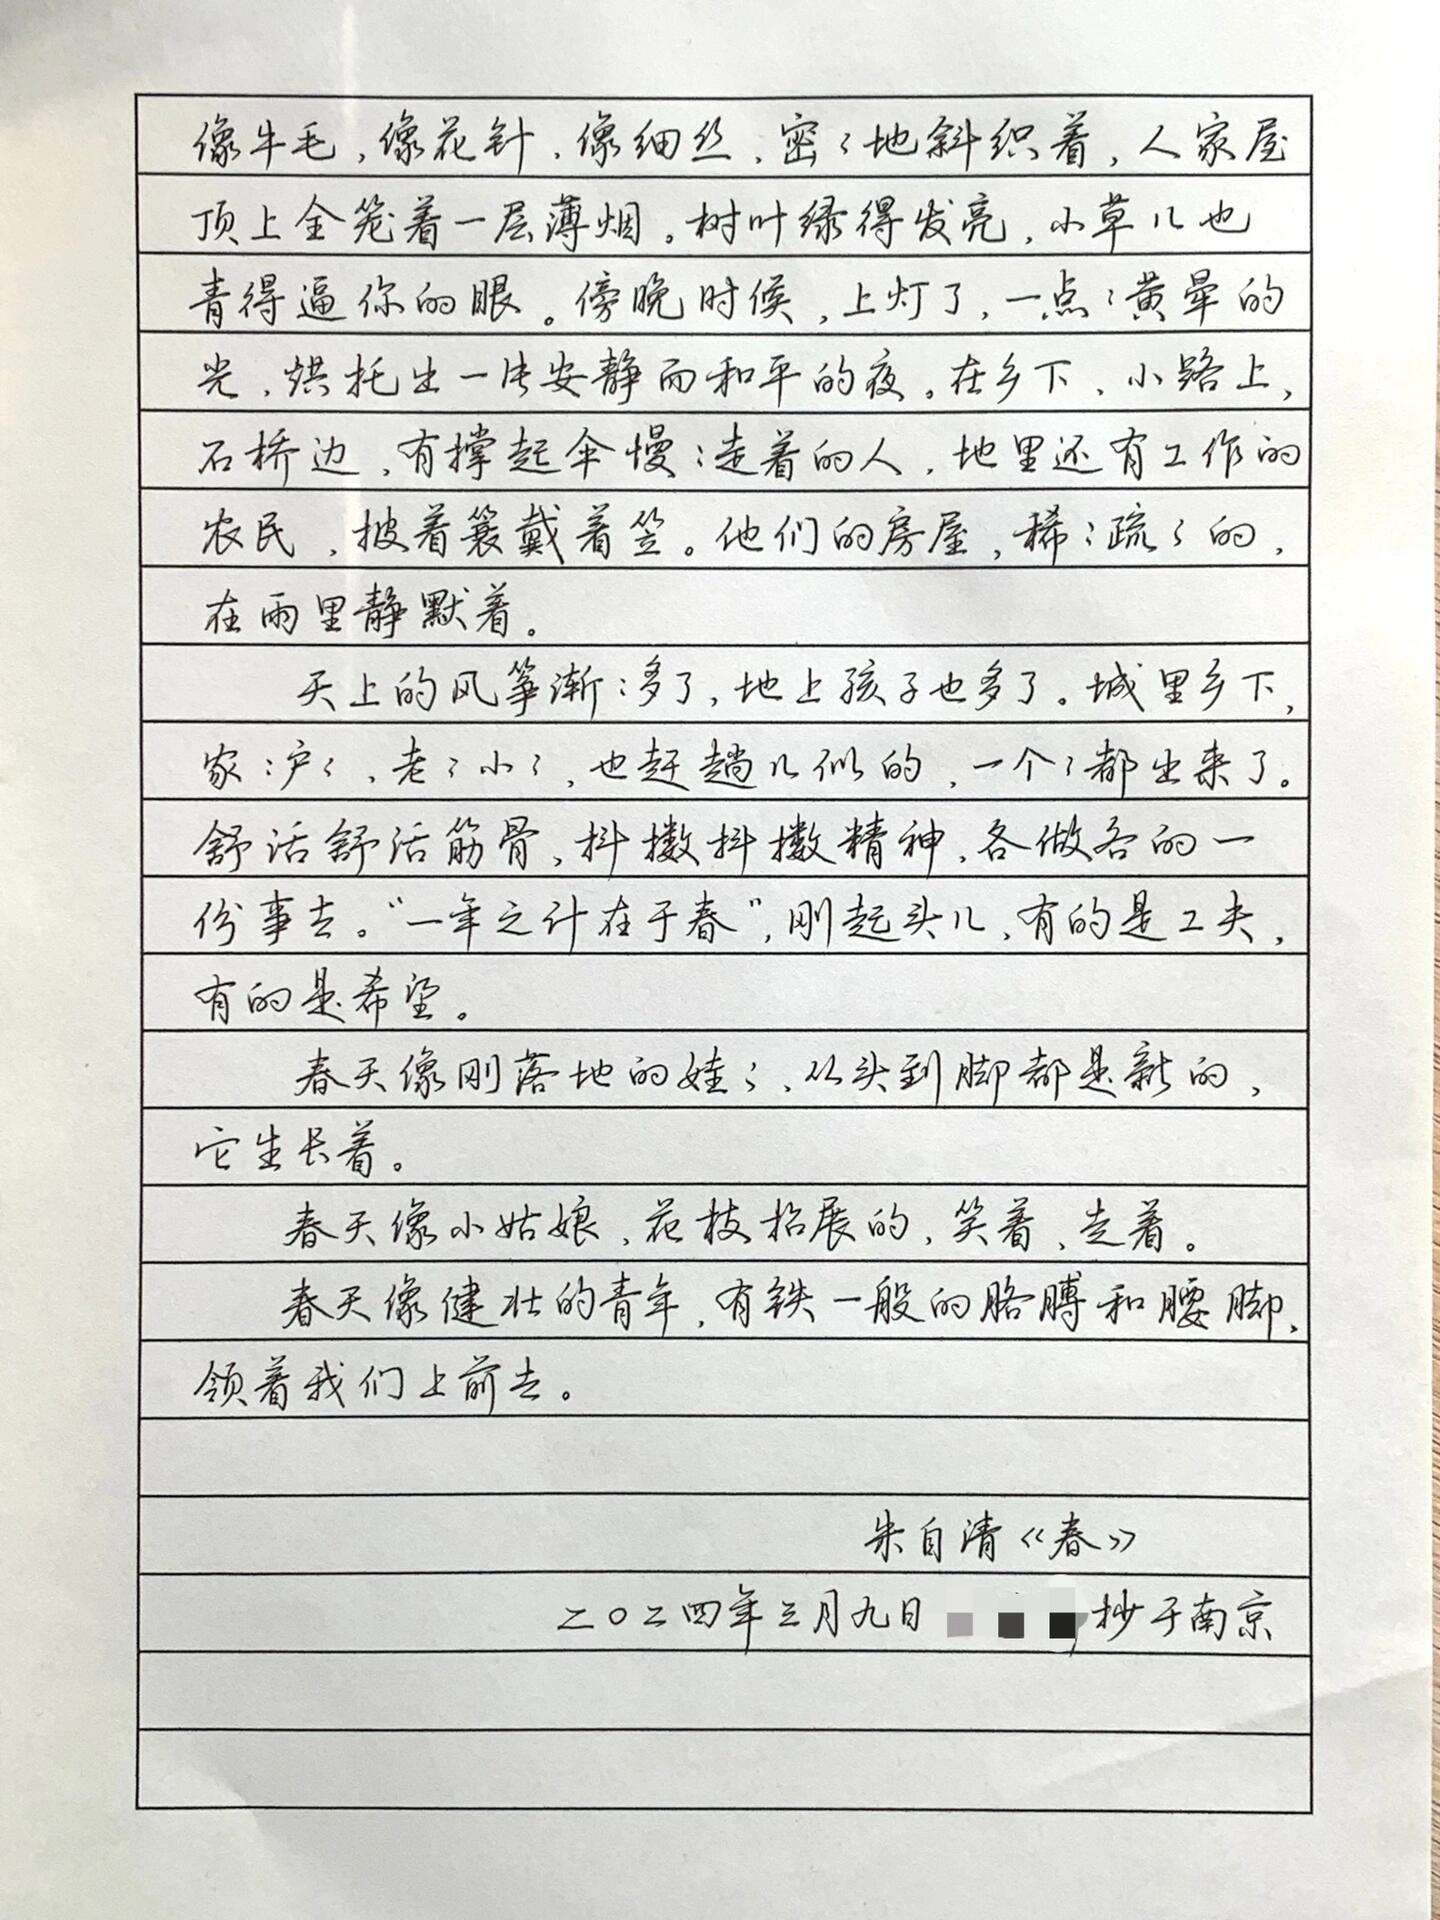 像牛毛，像花针，像细丝，密々地斜织着，人家屋
顶上全笼着一层薄烟。树叶绿得发亮，小草儿也
青得逼你的眼。傍晚时候，上灯了，一点々黄晕的
光，烘托出一片安静而和平的夜。在乡下，小路上，
石桥边，有撑起伞慢々走着的人，地里还有工作的
农民，披着蓑戴着笠。他们的房屋，稀々疏々的，
在雨里静默着。
天上的风筝渐々多了，地上孩子也多了。城里乡下，
家々户々，老々小々，也赶趟儿似的，一个々都出来了。
舒活舒活筋骨，抖擞抖擞精神，各做各的一
份事去。“一年之计在于春”，刚起头儿，有的是工夫，
有的是希望。
春天像刚落地的娃々，从头到脚都是新的，
它生长着。
春天像小姑娘，花枝招展的，笑着，走着。
春天像健壮的青年，有铁一般的胳膊和腰脚，
领着我们上前去。
朱自清《春》
二〇二四年三月九日 抄于南京